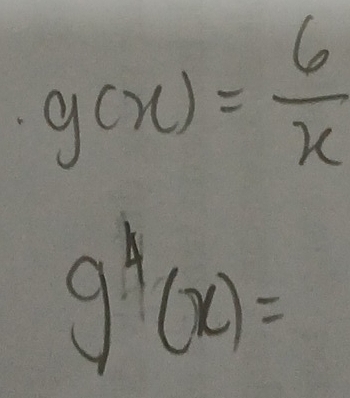 g(x) = 6/x
g⁴(x) =